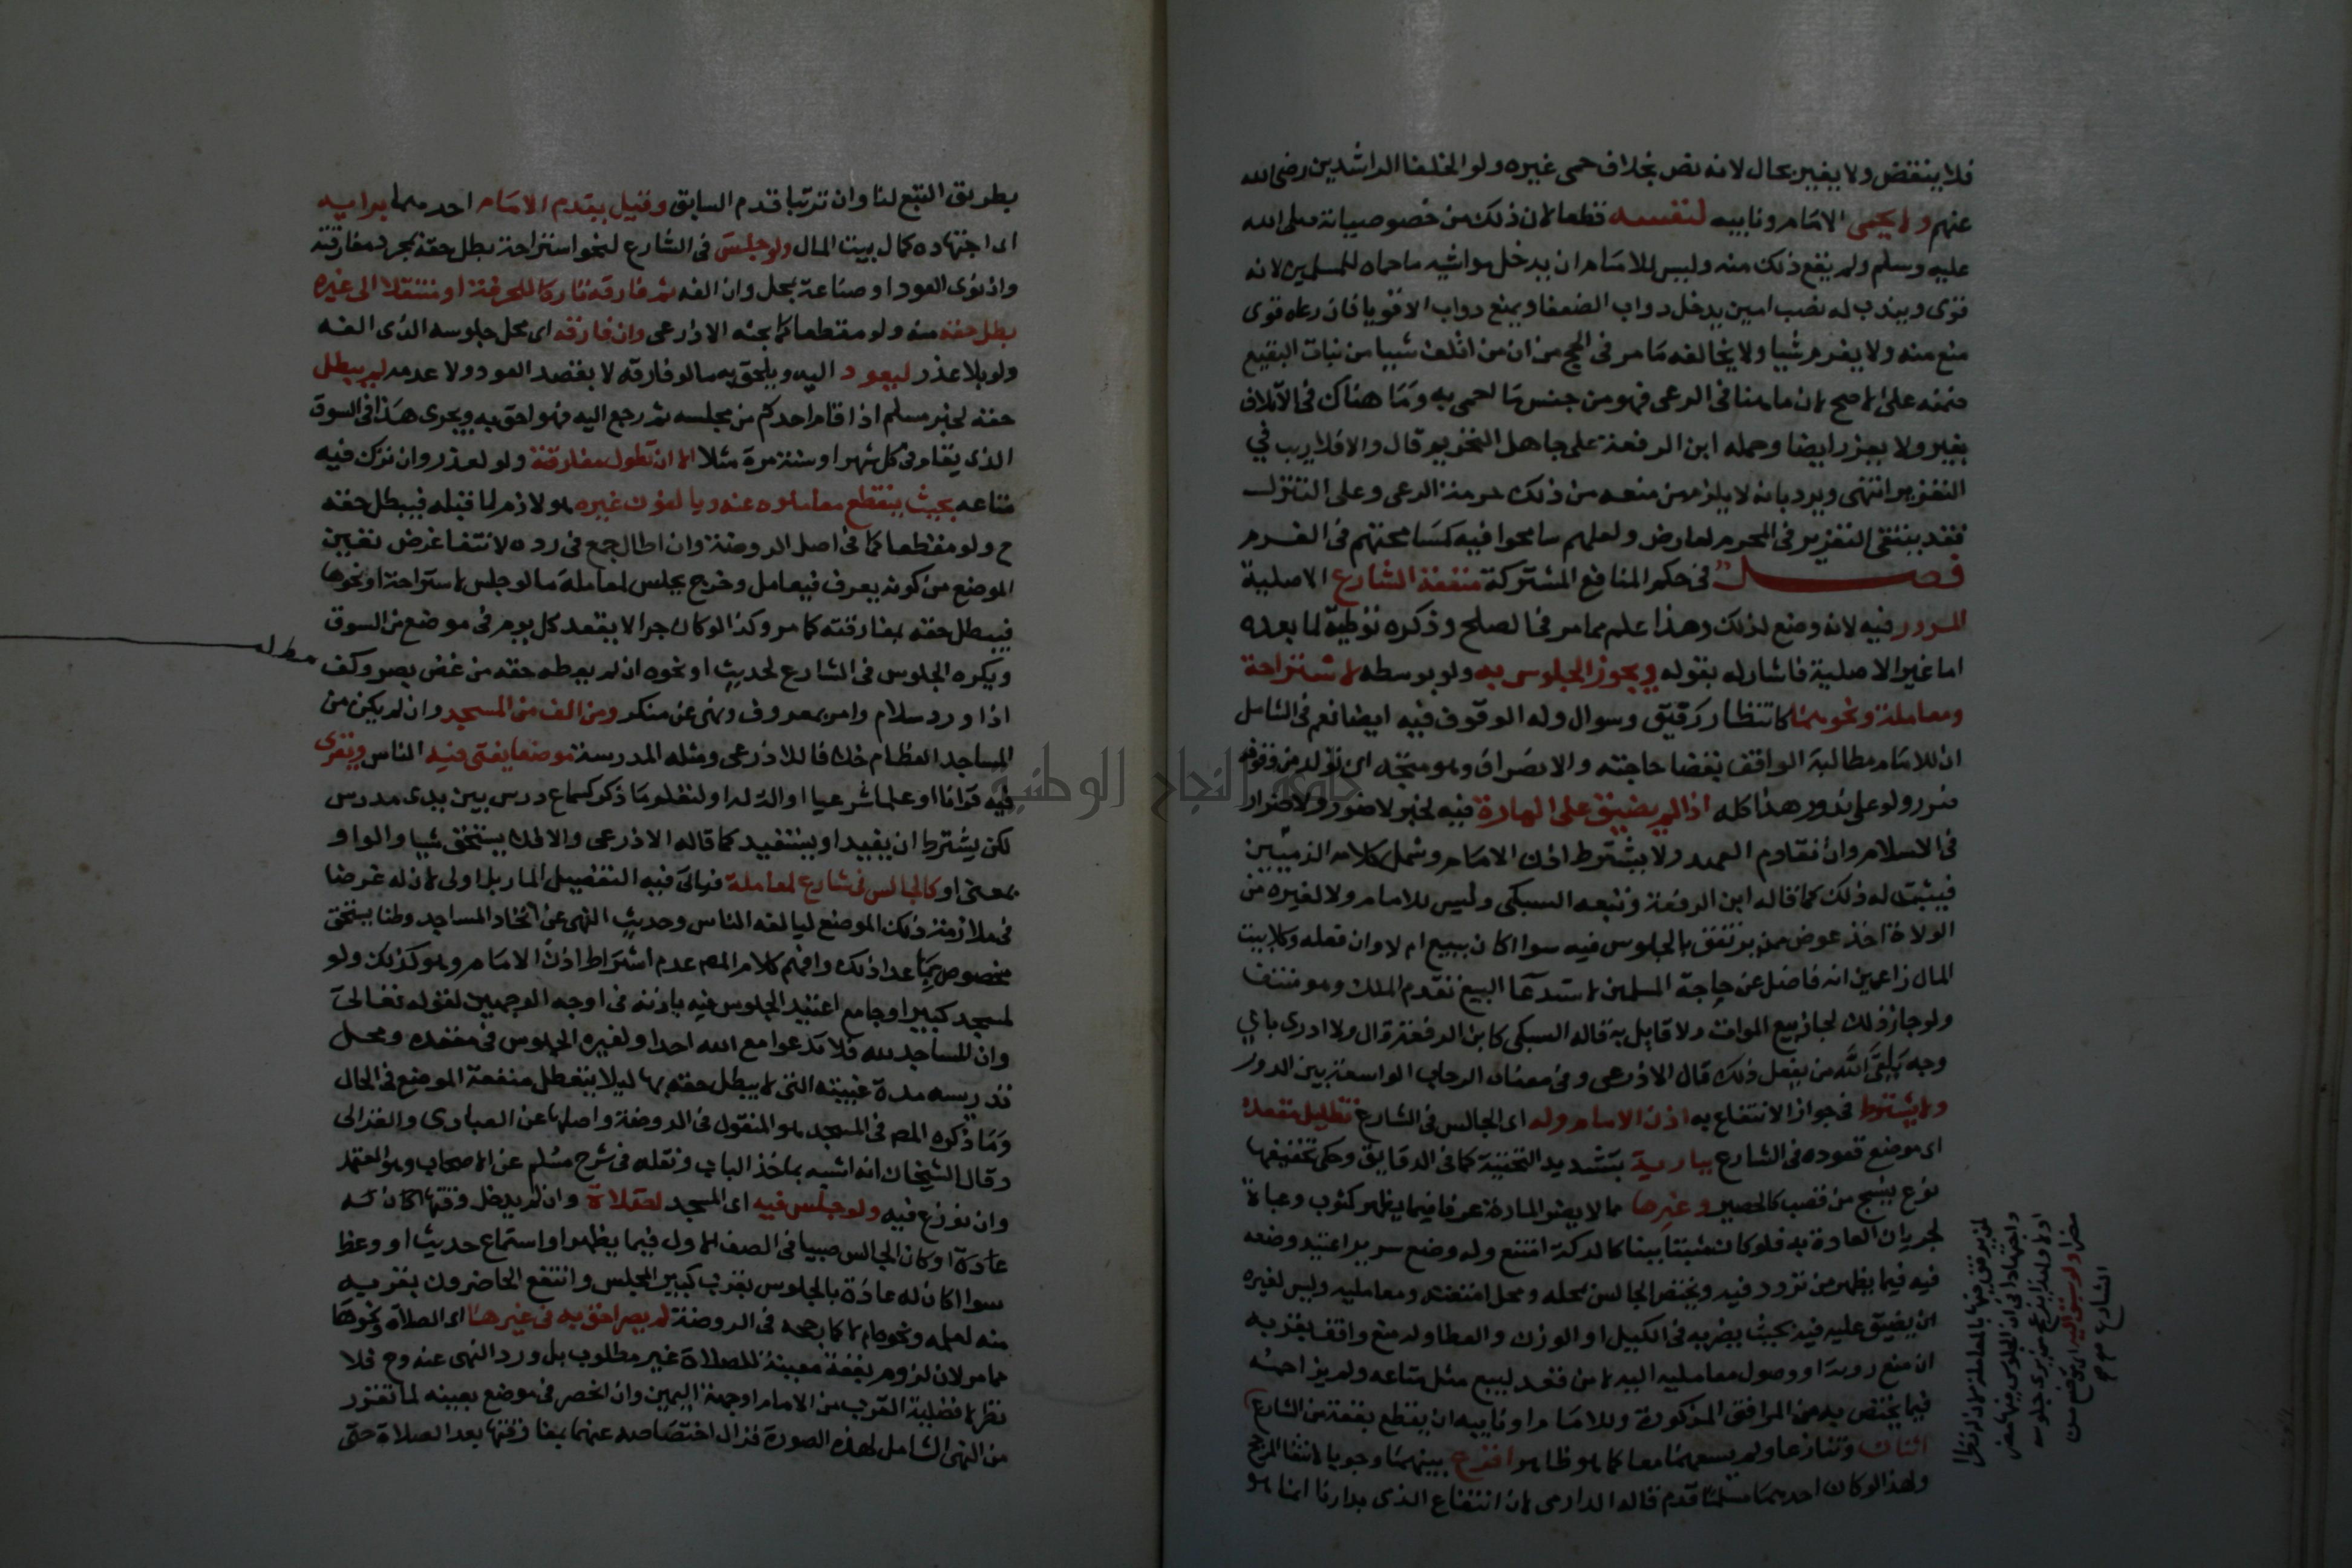 فلا ينقض ولا يغير بحال لانه نص بخلاف حمى غيره ولو الخلفا الراشدين رضي الله
عنهم ولا يحمى الامام ونايبه لنفسه قطعا لان ذلك من خصوصياته صلى الله
عليه وسلم ولم يقع ذلك منه وليس للامام ان يدخل مواشيه ماحماه للمسلمين لانه
قوى ويندب له نصب امين يدخل دواب الضعفا ويمنع دواب الاقويا فان رعاه قوى
منع منه ولا يغرم شيا ولا يخالفه مامر فى الحج من ان من اتلف شيا من نبات البقيع
ضمنه على الاصح لان ماهنا فى الرعى فهو من جنس ما احمى به وما هناك فى الاتلاف
بغير ولا يعزر ايضا وحمله ابن الرفعة على جاهل التحريم قال والا فلا ريب في
التعزير انتهى ويرد بانه لا يلزم من منعه من ذلك حرمة الرعى وعلى التنزل
فقد ينتفى التعزير فى المحرم لعارض ولعلهم سامحوا فيه كمسامحتهم فى الغرم
فصل فى حكم المنافع المشتركة منفعة الشارع الاصلية
المرور فيه لانه وضع لذلك وهذا علم مما مر فى الصلح وذكره توطية لما بعده
اما غير الاصلية فاشار له بقوله ويجوز الجلوس به ولو بوسطه لاستراحة
ومعاملة ونحوهما كانتظار رفيق وسوال وله الوقوف فيه ايضا نعم فى الشامل
ان للامام مطالبة الواقف بقضا حاجته والانصراف وهو متجه اى تولد من وقوفه
ضرر ولو على ندور هذا كله اذا لم يضيق على المارة فيه لخبر لا ضرر ولا ضرار
فى الاسلام وان تقادم العهد ولا يشترط اذن الامام وشمل كلامه الذميين
فيثبت له ذلك كما قاله ابن الرفعة وتبعه السبكى وليس للامام ولا لغيره من
الولاة اخذ عوض ممن يرتفق بالجلوس فيه سوا اكان ببيع ام لا وان فعله وكلا بيت
المال زاعمين انه فاضل عن حاجة المسلمين لاستدعا البيع تقدم الملك وهو منتف
ولو جاز ذلك لجاز بيع الموات ولا قايل به قاله السبكى كابن الرفعة قال ولا ادرى باي
وجه يلقى الله من يفعل ذلك قال الاذرعى وفى معناه الرحاب الواسعة بين الدور
ولا يشترط فى جواز الانتفاع به اذن الامام وله اى الجالس فى الشارع تظليل مقعده
اى موضع قعوده فى الشارع ببارية بتشديد التحتية كما فى الدقايق وحكى تخفيفها
نوع ينسج من قصب كالحصير وغيرها مما لا يضر المارة عرفا فيما يظهر كثوب وعباة
لجريان العادة به فلو كان مثبتا ببنا كالدكة امتنع وله وضع سرير اعتيد وضعه
فيه فيما يظهر من تردد فيه ويختص الجالس بمحله ومحل امتعته ومعامليه وليس لغيره
ان يضيق عليه فيه بحيث يضر به فى الكيل او الوزن والعطا وله منع واقف بقربه
ان منع روية او وصول معامليه اليه لا من قعد ليبيع مثل متاعه ولم يزاحمه
فيما يختص به من المرافق المذكورة وللامام او نايبه ان يقطع بقعة من الشارع
اثنان وتنازعا ولم يسعهما معا كما هو ظاهر اقرع بينهما وجوبا لانتفا المرجح
ولهذا لو كان احدهما مسلما قدم قاله الدارمى لان انتفاع الذمى بدارنا انما هو
لمن يرتفق فيها بالمعاملة
ولو سبق اليه اى موضع من
الشارع صح
بطريق التبع لنا وان ترتبا قدم السابق وقيل يقدم الامام احدهما برايه
اى اجتهاده كمال بيت المال ولو جلس فى الشارع لنحو استراحة بطل حقه بمجرد مفارقته
وان نوى العود او صناعة بمحل وان الفه ثم فارقه تاركا للحرفة او منتقلا الى غيره
بطل حقه منه ولو مقتطعا كما بحثه الاذرعى وان فارقه اى محل جلوسه الذى الفه
ولو بلا عذر ليعود اليه ويلحق به ما لو فارقه لا بقصد العود ولا عدمه لم يبطل
حقه لخبر مسلم اذا قام احدكم من مجلسه ثم رجع اليه فهو احق به ويجرى هذا فى السوق
الذى يقام فى كل شهر او سنة مرة مثلا الا ان تطول مفارقته ولو لعذر وان ترك فيه
متاعه بحيث ينقطع معاملوه عنه ويالفون غيره هو لازم لما قبله فيبطل حقه
ح ولو مقتطعا كما فى اصل الروضة وان اطال جمع فى رده لانتفا غرض تعيين
الموضع من كونه يعرف فيعامل وخرج بجلس لمعاملة ما لو جلس لاستراحة او نحوها
فيبطل حقه بمفارقته كما مر وكذا لو كان جوالا يقعد كل يوم فى موضع من السوق
ويكره الجلوس فى الشارع لحديث او نحوه ان لم يعطه حقه من غض بصر وكف
اذا ورد سلام وامر بمعروف ونهى عن منكر ومن الف من المسجد وان لم يكن من
المساجد العظام خلافا للاذرعى ومثله المدرسة موضعا يفتى فيه الناس ويقرى
فيه قرانا او علما شرعيا او الة له او لتعلم ما ذكر كسماع درس بين يدى مدرس
لكن يشترط ان يفيد او يستفيد كما قاله الاذرعى والا فلا يستحق شيا والواو
بمعنى او كالجالس فى شارع لمعاملة فياتى فيه التفصيل المار بل اولى لان له غرضا
فى ملازمة ذلك الموضع ليالفه الناس وحديث النهى عن اتخاذ المساجد وطنا يستحق
مخصوص بما عدا ذلك وافهم كلام المص عدم اشتراط اذن الامام وهو كذلك ولو
لمسجد كبير او جامع اعتيد الجلوس فيه باذنه فى اوجه الوجهين لقوله تعالى
وان المساجد لله فلا تدعوا مع الله احدا ولغيره الجلوس فى مقعده ومحل
تدريسه مدة غيبته التى لا يبطل حقه بها ليلا يتعطل منفعة الموضع فى الحال
وما ذكره المص فى المسجد هو المنقول فى الروضة واصلها عن العبادى والغزالى
وقال الشيخان انه اشبه بماخذ الباب ونقله فى شرح مسلم عن الاصحاب وهو المعتمد
وان نوزع فيه ولو جلس فيه اى المسجد لصلاة وان لم يدخل وقتها اكان له
عادة او كان الجالس صبيا فى الصف الاول فيما يظهر او استماع حديث او وعظ
سوا اكان له عادة بالجلوس بقرب كبير المجلس وانتفع الحاضرون بقربه
منه لعلمه ونحوه ام لا كما بحثه فى الروضة لم يصر احق به فى غيرها اى الصلاة ونحوها
مما مر لان لزوم بقعة معينة للصلاة غير مطلوب بل ورد النهى عنه وح فلا
نظر لافضلية القرب من الامام او جهة اليمين وان انحصر فى موضع بعينه لما تقرر
من النهى الشامل لهذه الصورة فزال اختصاصه عنهما بمفارقتها بعد الصلاة حتى
جامعة النجاح الوطنية